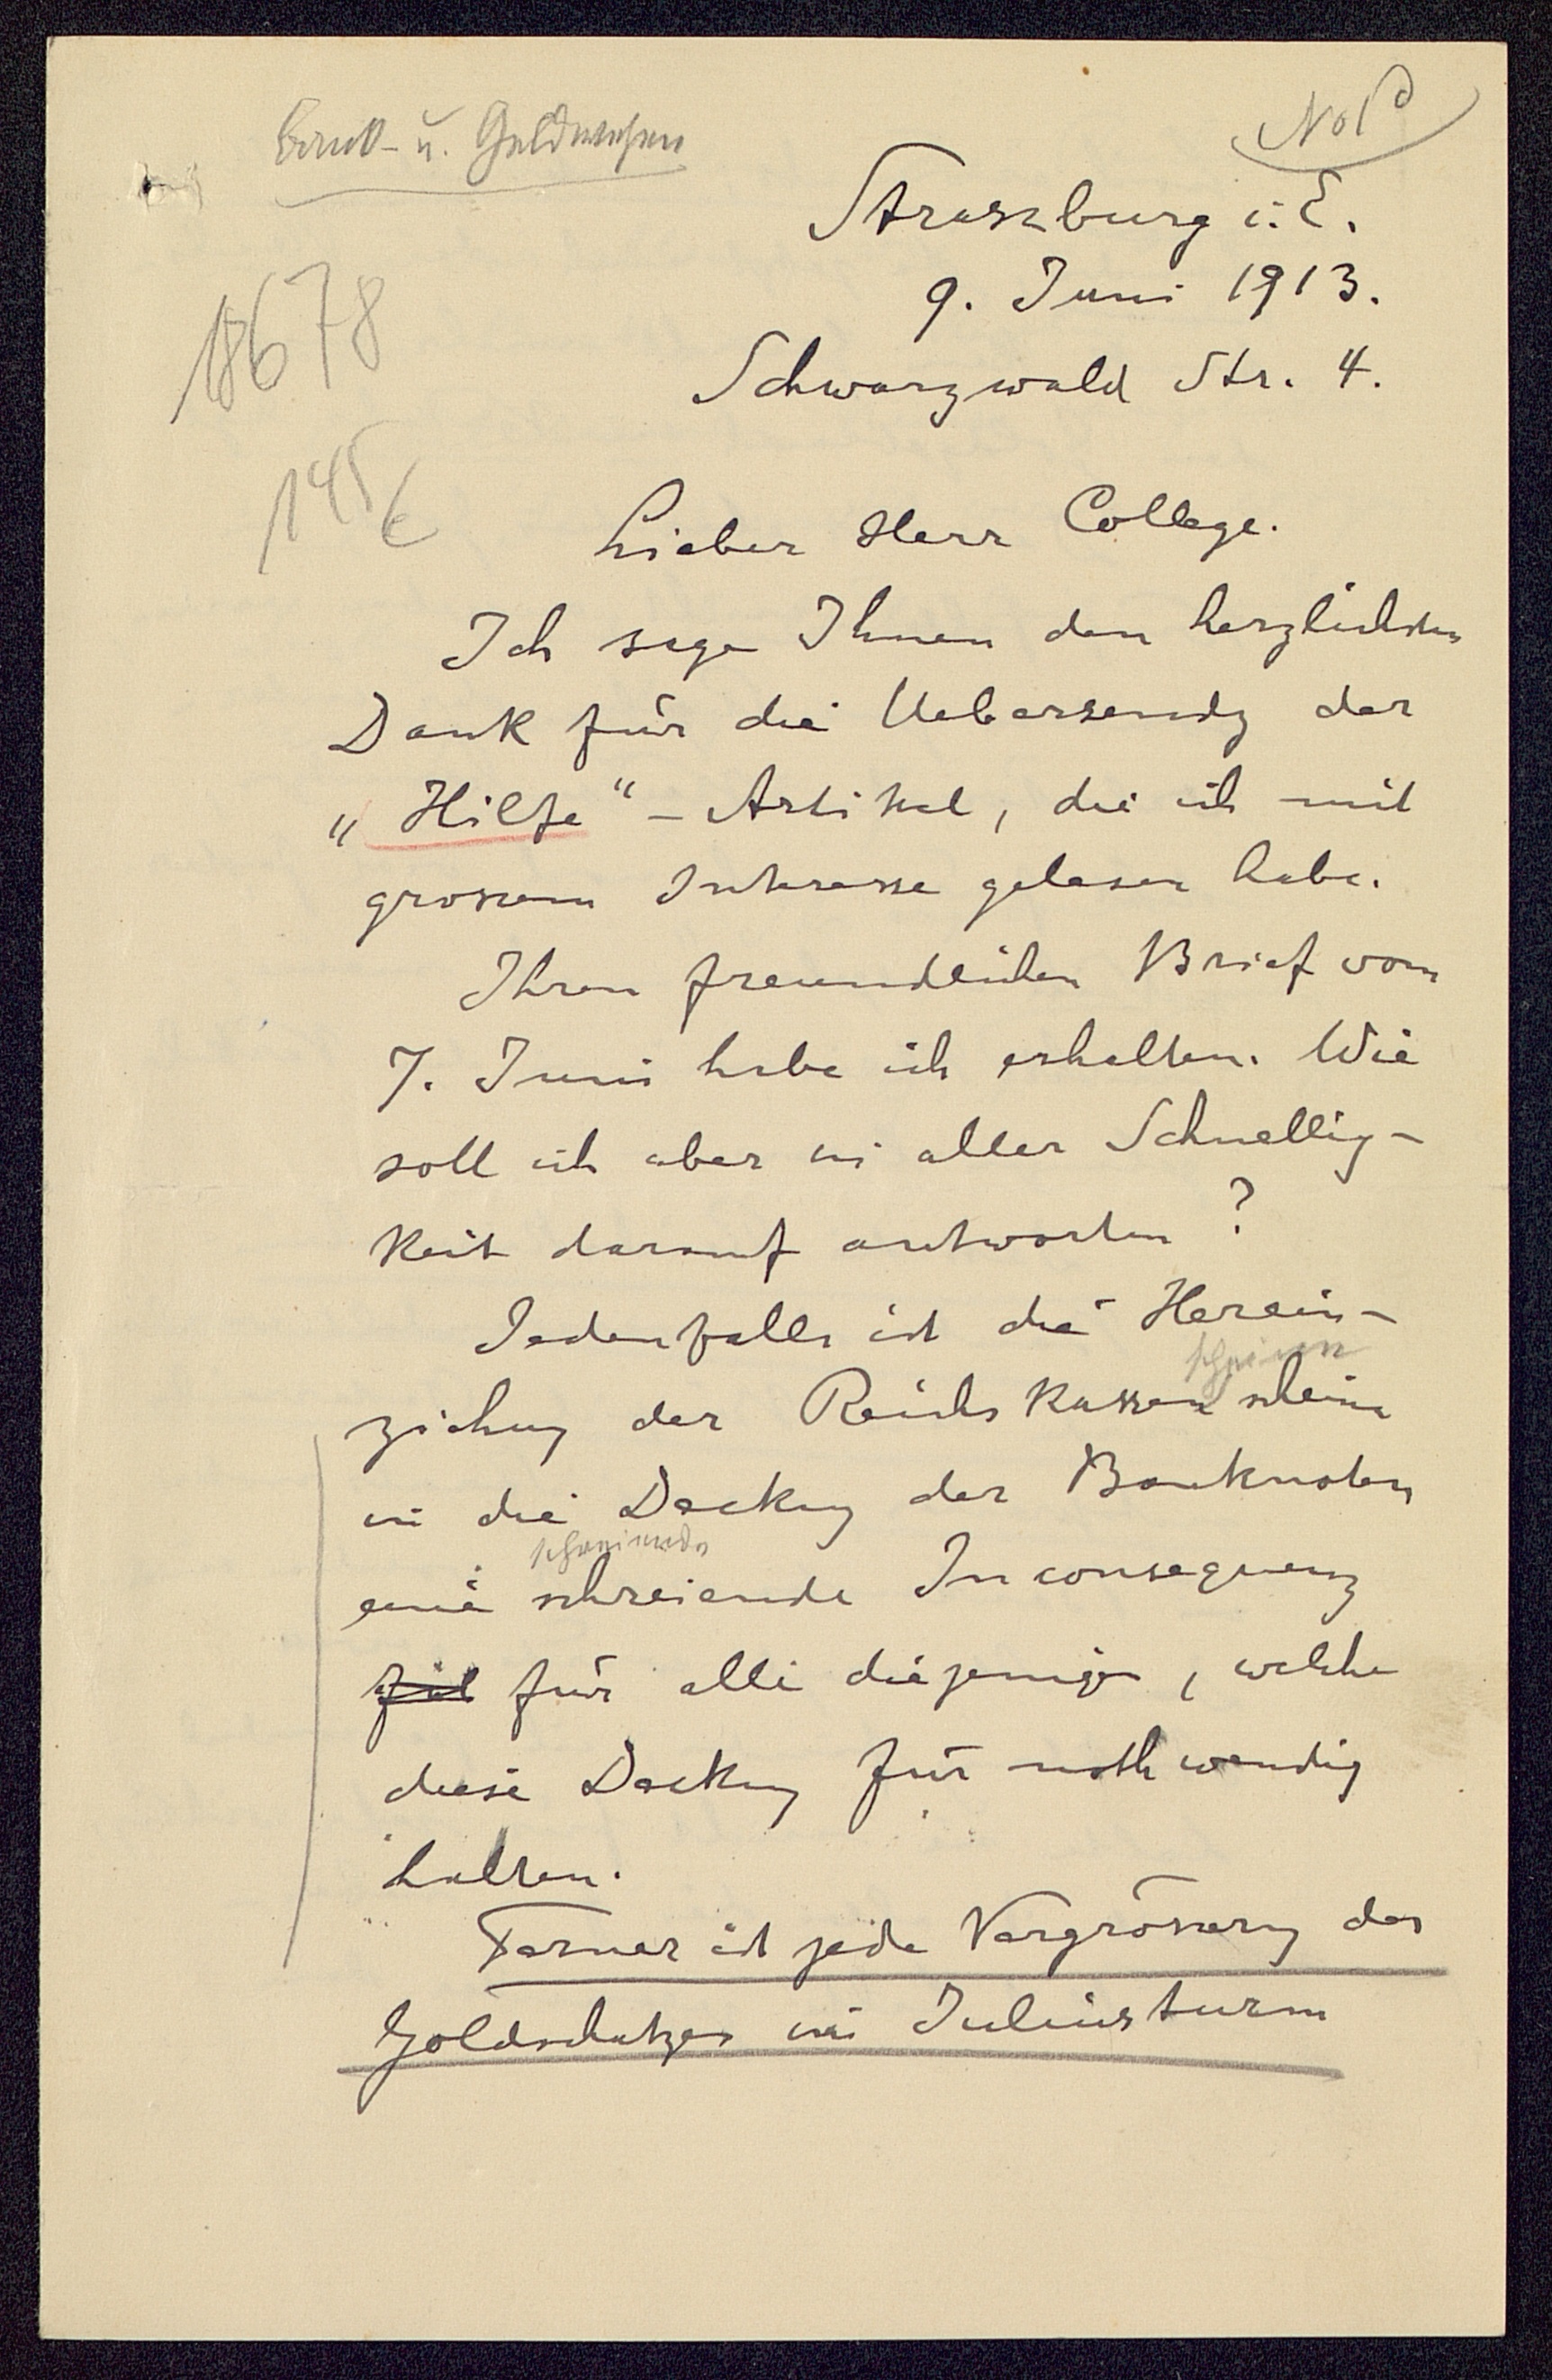 Bank- u. Geldwesen
Straszburg i. E.
9. Juni 1913.
Schwarzwald Str. 4.
18678
Lieber Herr College.
Ich sage Ihnen den herzlichsten
Dank für die Uebersendg der
„Hilfe“-Artikel, die ich mit
grossem Interesse gelesen habe.
Ihren freundlichen Brief vom
7. Juni habe ich erhalten. Wie
soll ich aber in aller Schnellig-
keit darauf antworten?
Jedenfalls ist die Herein-
scheine
ziehung der Reichskassenscheine
in die Deckung der Banknoten
schreiende
eine schreiende Inconsequenz
für alle diejenigen, welche
diese Deckung für nothwendig
halten.
Ferner ist jede Vergrösserung des
Goldschatzes im Juliusturm